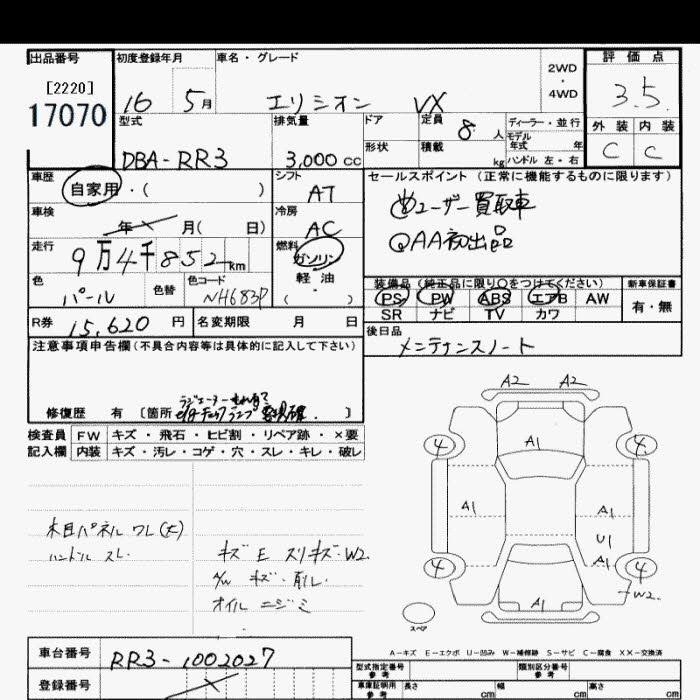 出品番号 初度登録年月 車名・グレード 評価点
[2220]
17070
16 5月 エリシオン VX 2WD・4WD 3.5
型式 排気量 ドア 定員 8人 ディーラー・並行 外装 内装
形状 積載 kg モデル年式 年 ハンドル 左・右
DBA-RR3 3,000cc C C
車歴 自家用・( ) シフト AT セールスポイント (正常に機能するものに限ります)
車検 年 月( 日) 冷房 AC ユーザー買取車
走行 9万4千852km 燃料 ガソリン 軽油 ( ) QAA初出品
色 パール 色替 色コード NH683P
装備品 (純正品に限り○をつけてください) 新車保証書
PS PW ABS エアB AW 有・無
SR ナビ TV カワ
R券 15,620円 名変期限 月 日 後日品
メンテナンスノート
注意事項申告欄(不具合内容等は具体的に記入して下さい)
修復歴 有 [箇所 ]
検査員記入欄 FW キズ・飛石・ヒビ割・リペア跡・×要
内装 キズ・汚レ・コゲ・穴・スレ・キレ・破レ
A2 A2
4 A1 4
A1 A1
U1
A1
4 4
W2
A1
スペア
木目パネル ワレ(大)
ハンドル スレ
キズ E スリキズ・W2
A/W キズ・削レ
オイル ニジミ
A-キズ E-エクボ U-凹み W-補修跡 S-サビ C-腐食 XX-交換済
車台番号 RR3-1002027
登録番号
型式指定番号 参考 類別区分番号 参考
車庫証明用 参考 長さ cm 幅 cm 高さ cm